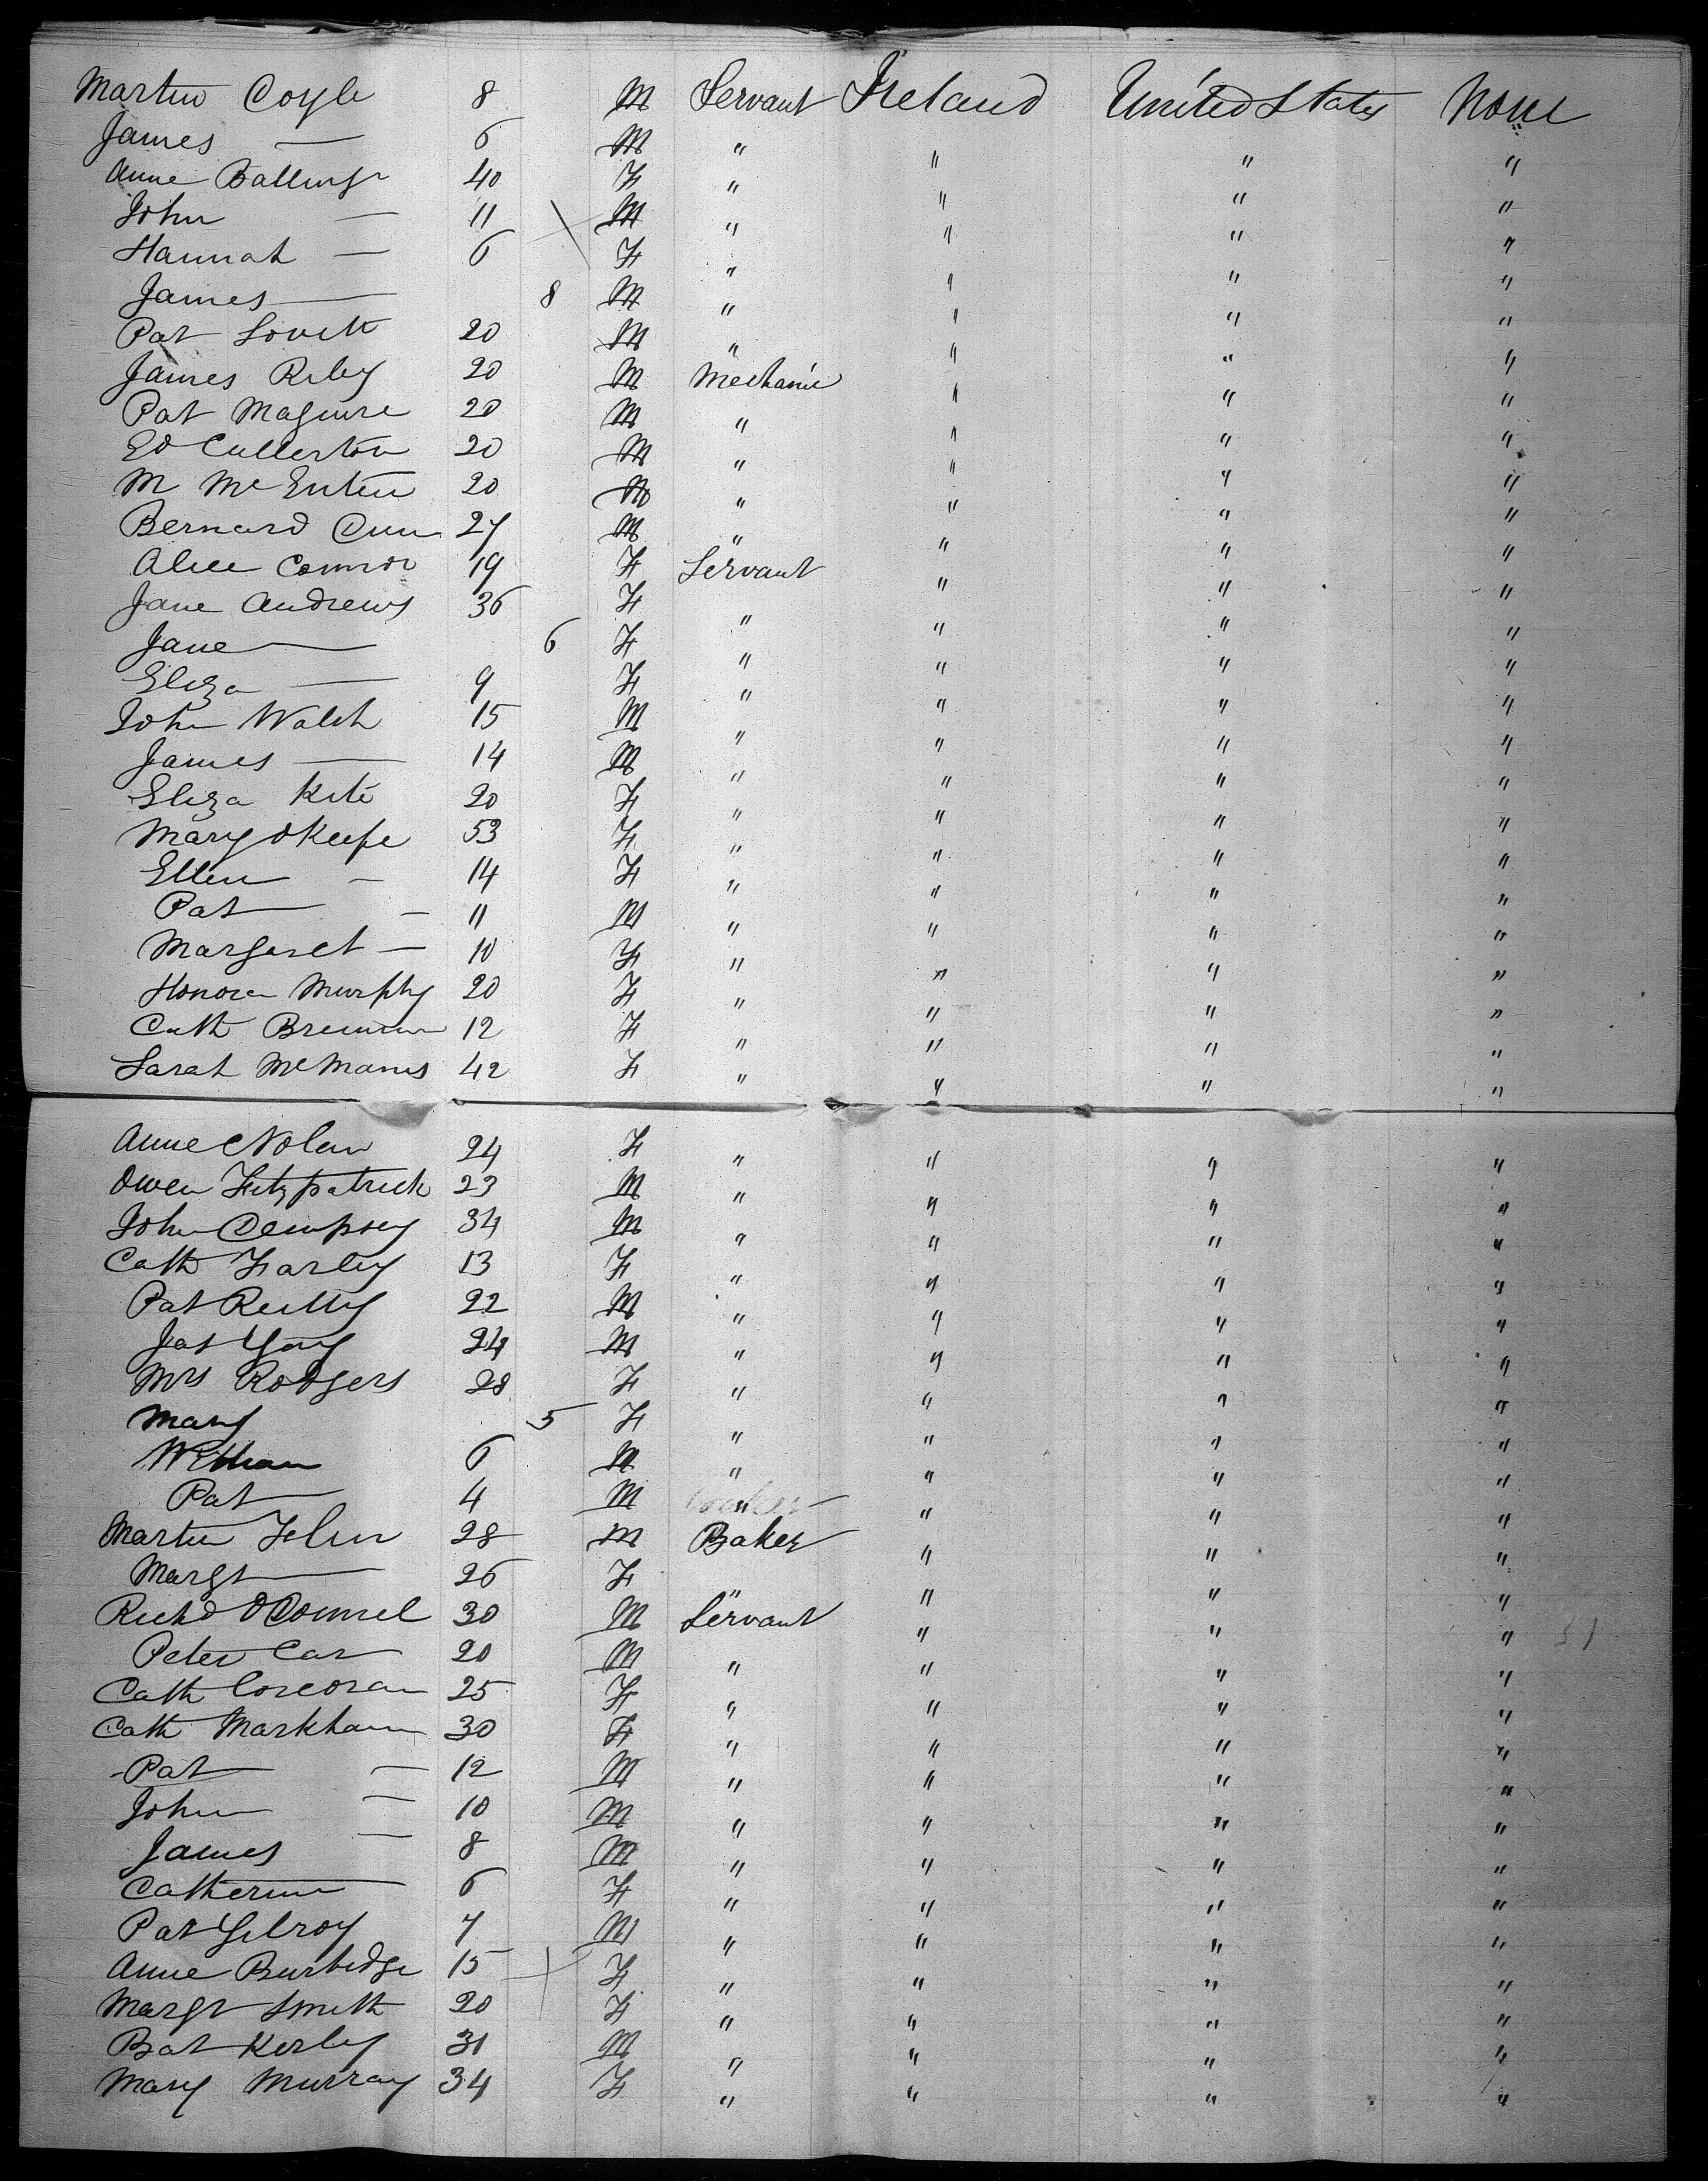 Martin Coyle 8 M Servant Ireland United States None
James — 6 M " " " "
Anne Ballingr 40 F " " " "
John — 11 M " " " "
Hannah — 6 F " " " "
James — 8 M " " " "
Pat Lovett 20 M " " " "
James Riley 20 M Mechanic " " "
Pat Maguire 20 M " " " "
Ed Cullerton 20 M " " " "
M McEntee 20 M " " " "
Bernard Dunn 27 M " " " "
Alice Connor 19 F Servant " " "
Jane Andrews 36 F " " " "
Jane — 6 F " " " "
Eliza — 9 F " " " "
John Walsh 15 M " " " "
James — 14 M " " " "
Eliza Kite 20 F " " " "
Mary OKeefe 53 F " " " "
Ellen — 14 F " " " "
Pat — 11 M " " " "
Margaret — 10 F " " " "
Honora Murphy 20 F " " " "
Cath Brennan 12 F " " " "
Sarah McManus 42 F " " " "
Anne Nolan 24 F " " " "
Owen Fitzpatrick 23 M " " " "
John Dempsey 34 M " " " "
Cath Farley 13 F " " " "
Pat Reilly 22 M " " " "
Jas 24 M " " " "
Mrs Rodgers 28 F " " " "
Mary 5 F " " " "
William 6 M " " " "
Pat — 4 M " " " "
Martin 28 M Baker " " "
Margt — 26 F " " " "
Richd OConnel 30 M Servant " " "
Peter Car 20 M " " " "
Cath Corcoran 25 F " " " "
Cath Markham 30 F " " " "
Pat — 12 M " " " "
John — 10 M " " " "
James — 8 M " " " "
Catherine — 6 F " " " "
Pat Gilroy 7 M " " " "
Anne Burbidge 15 F " " " "
Margt Smith 20 F " " " "
Bat Kerley 31 M " " " "
Mary Murray 34 F " " " "